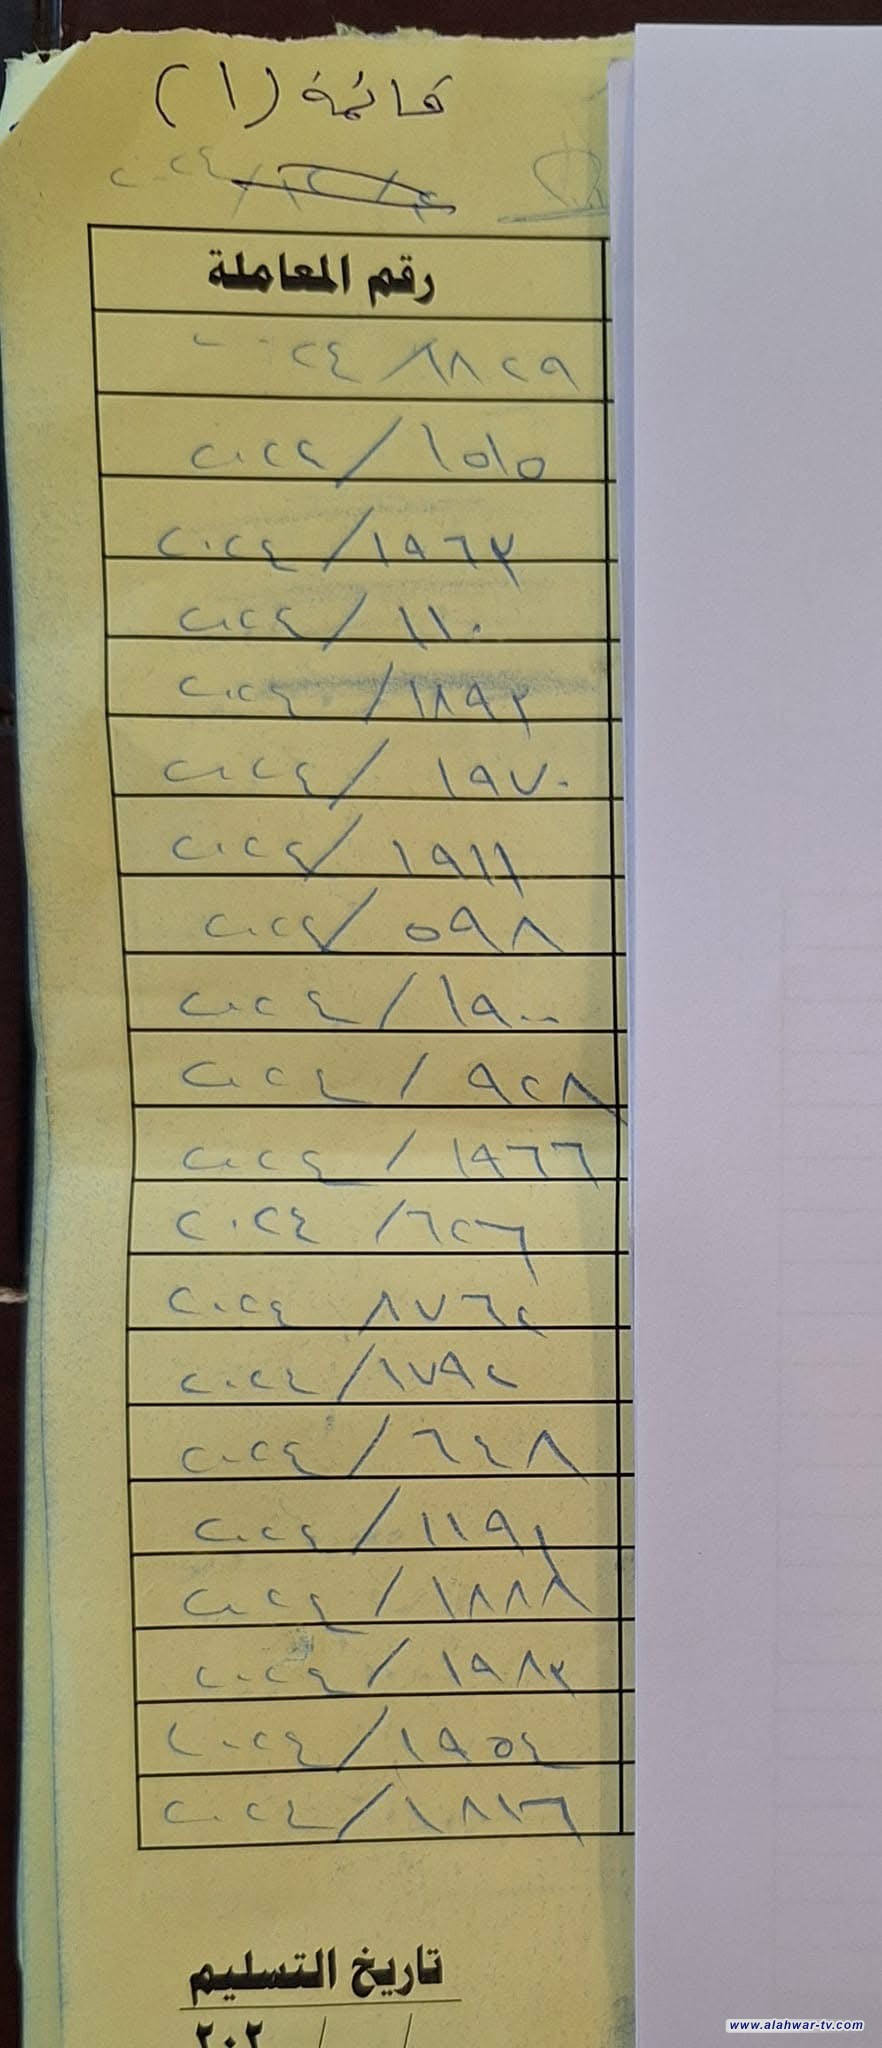 قائمة (١)
٢٠٢٤
رقم المعاملة
١٨٢٩/٢٠٢٤
١٥١٥/٢٠٢٤
١٩٦٣/٢٠٢٤
١١٠/٢٠٢٤
١٨٩٣/٢٠٢٤
١٩٧٠/٢٠٢٤
١٩١١/٢٠٢٤
٥٩٨/٢٠٢٤
١٩٠٠/٢٠٢٤
٩٢٨/٢٠٢٤
١٩٦٦/٢٠٢٤
٦٢٦/٢٠٢٤
٨٧٦٢ ٢٠٢٤
١٧٩٢/٢٠٢٤
٦٤٨/٢٠٢٤
١١٩١/٢٠٢٤
١٨٨٨/٢٠٢٤
١٩٨٣/٢٠٢٤
١٩٥٤/٢٠٢٤
١٨١٦/٢٠٢٤
تاريخ التسليم
/ / ٢٠٢
www.alahwar-tv.com